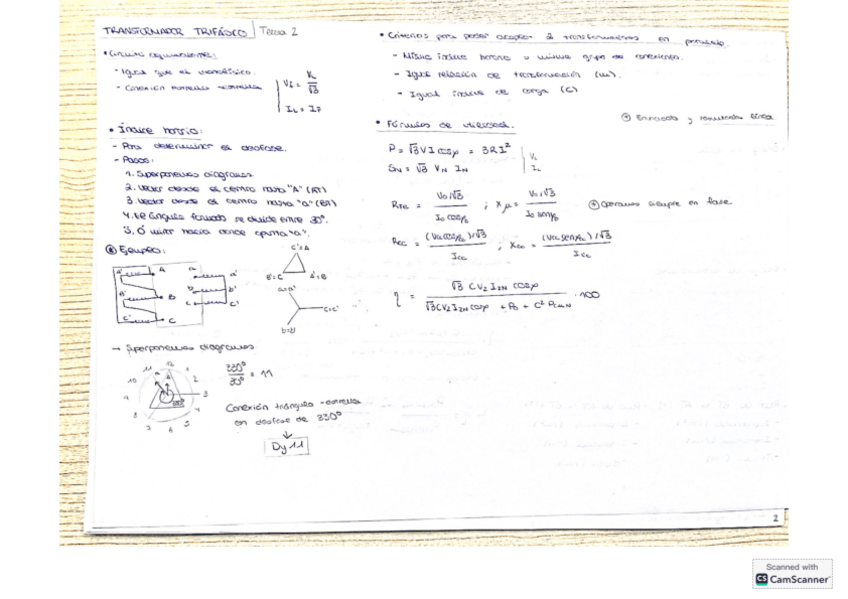 TRANSFORMADOR TRIFÁSICO | Tema 2
• Circuito equivalente:
- Igual que el monofásico.
- Conexión estrella-estrella
Vf = VL/√3
IL = IF
• Índice horario:
- Para determinar el desfase.
- Pasos:
1. Superponemos diagramas
2. Vector desde el centro hasta "A" (AT)
3. Vector desde el centro hasta "a" (BT)
4. El ángulo formado se divide entre 30°.
5. Ó mirar hacia donde apunta "a".
Ejemplo:
A' A
B' B
C' C
a a'
b b'
c c'
C'=A
B'=C A'=B
a=a'
c=c'
b=b'
→ Superponemos diagramas
330°/30° = 11
Conexión triángulo-estrella
con desfase de 330°
↓
Dy11
• Criterios para poder acoplar 2 transformadores en paralelo
- Mismo índice horario o mismo grupo de conexiones.
- Igual relación de transformación (m).
- Igual índice de carga (C)
Enunciado y resultado línea
• Fórmulas de utilidad.
P = √3 V I cosφ = 3RI² | VL
SN = √3 VN IN | IL
RFe = (V0/√3)/(I0 cosφ0) ; Xμ = (V0/√3)/(I0 senφ0)
Operamos siempre en fase
Rcc = ((Vcc cosφcc)/√3)/Icc ; Xcc = ((Vcc senφcc)/√3)/Icc
η = (√3 C V2 I2N cosφ)/(√3 C V2 I2N cosφ + P0 + C² PCuN) · 100
2
Scanned with
CS CamScanner